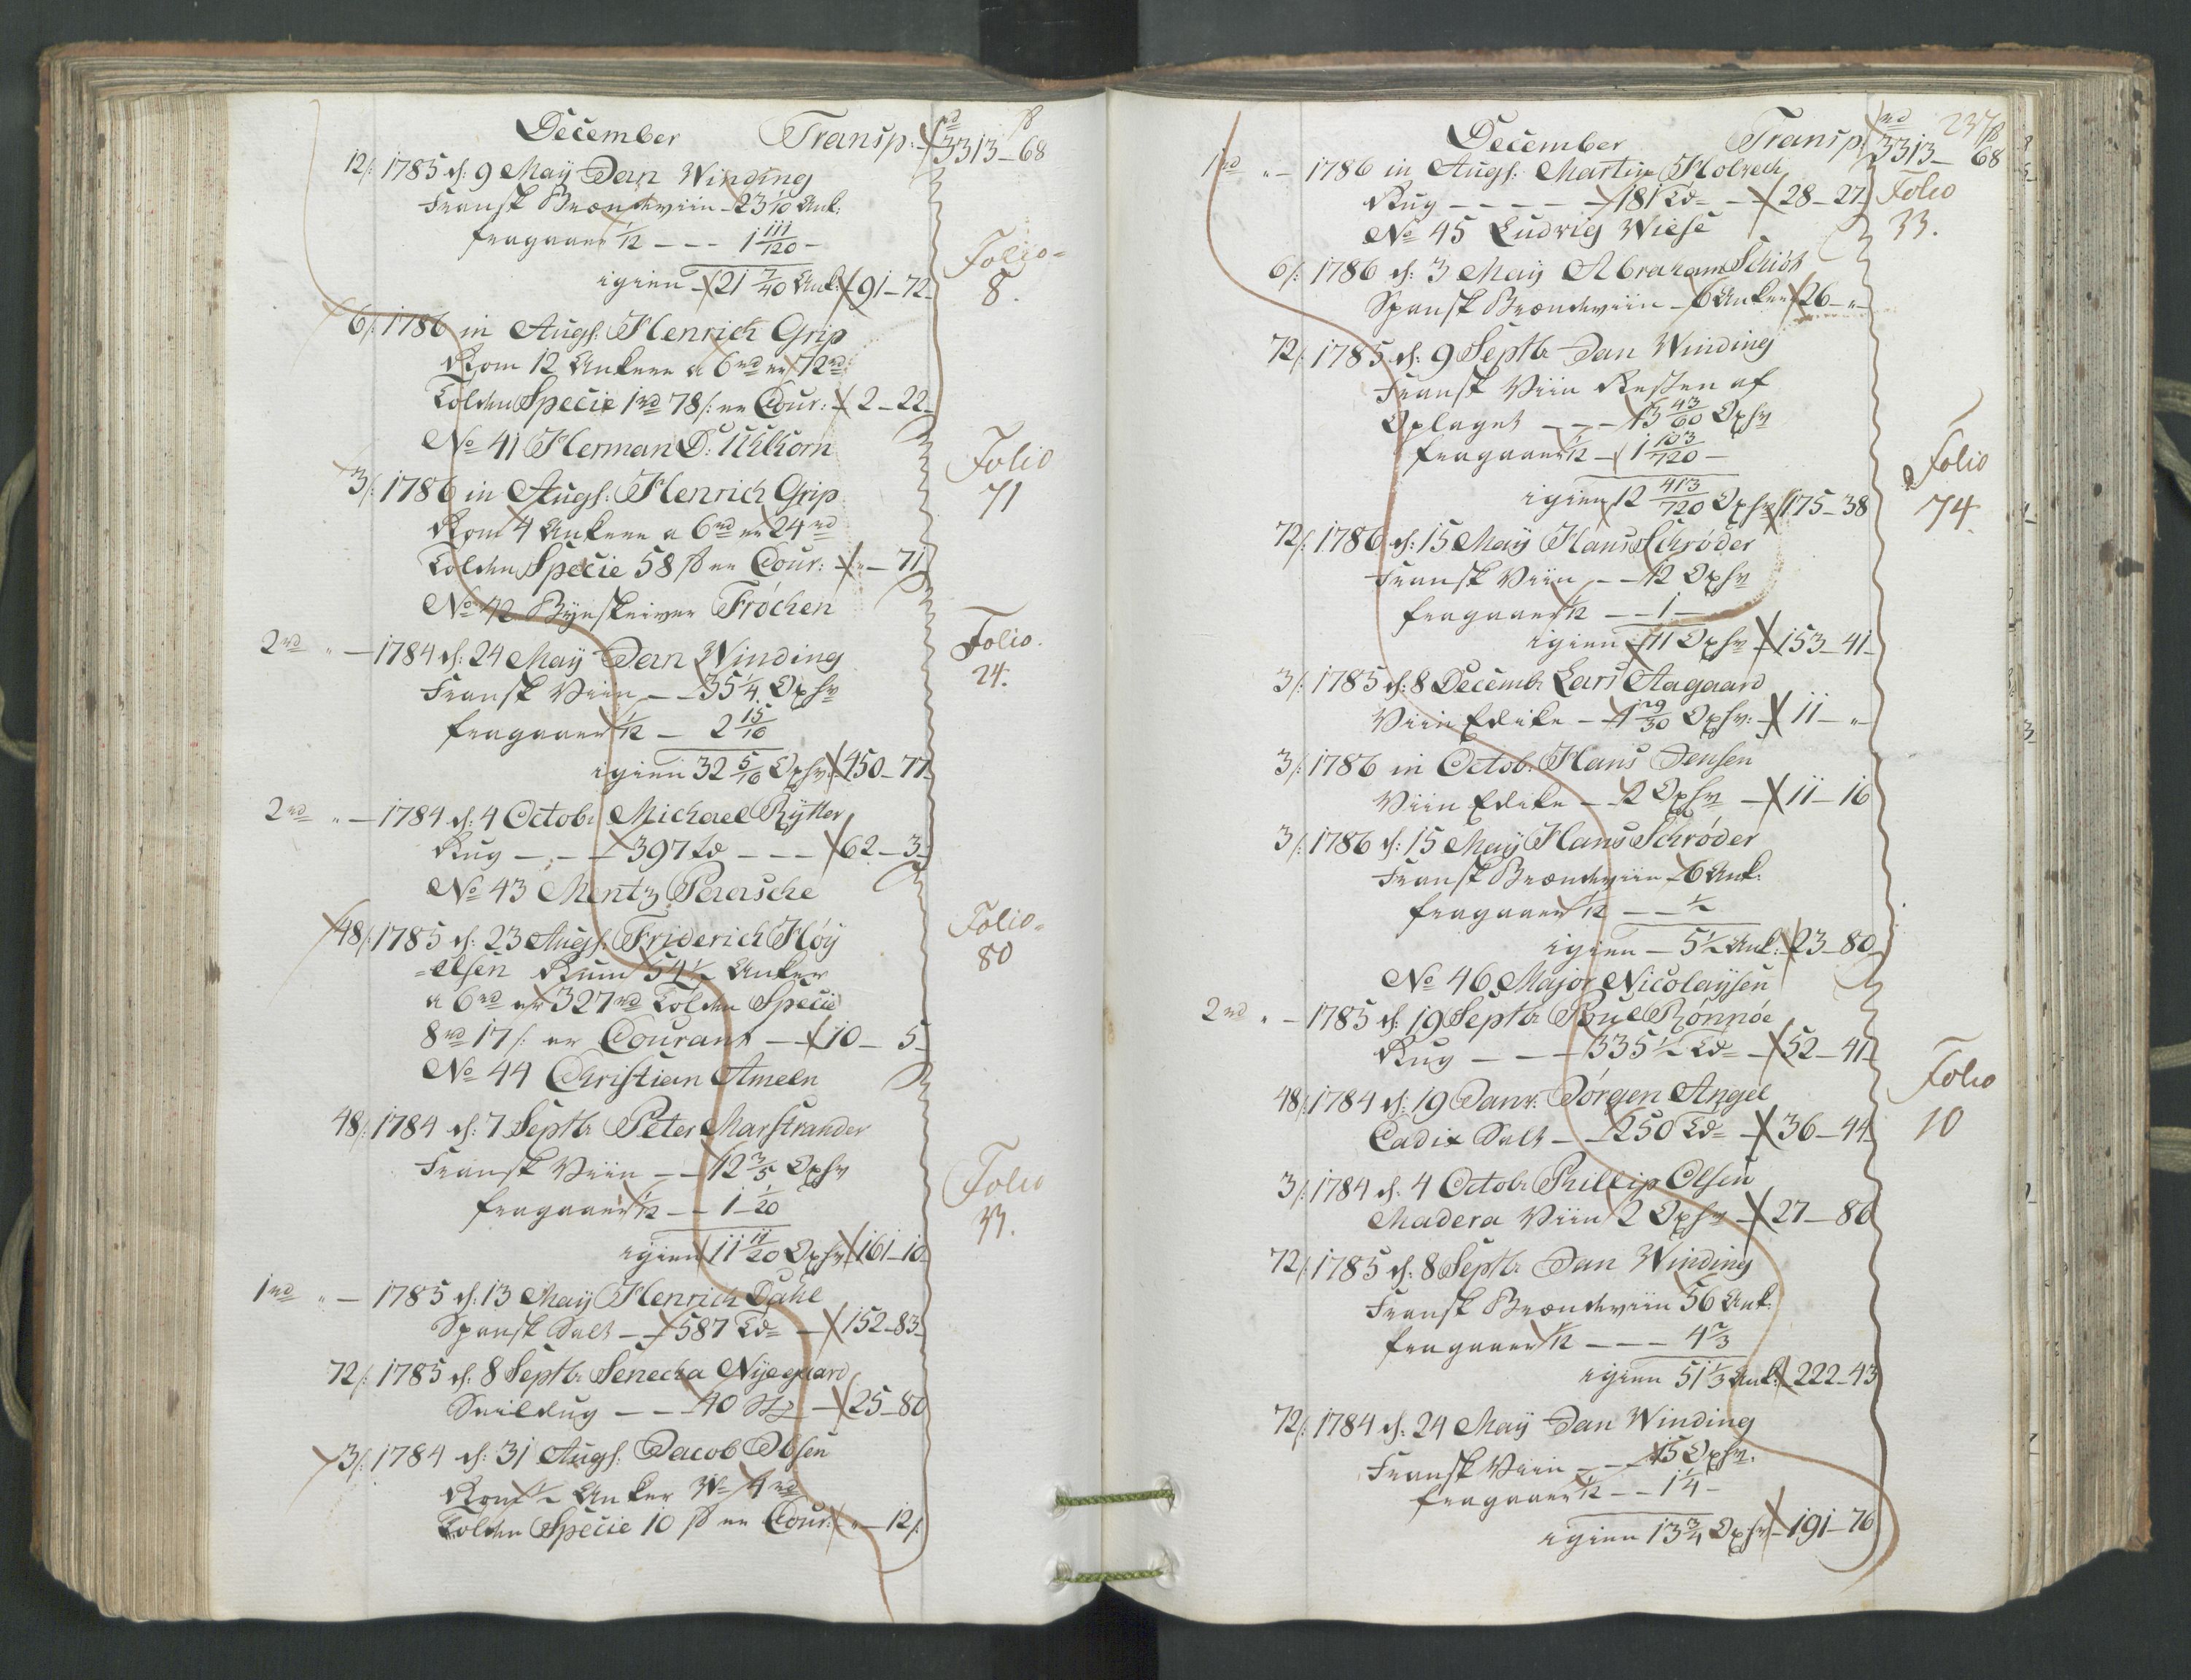 December Transp: rd 3313 - 68 ß
12/: 1785 d: 9 May Dan Winding
Fransk Brændeviin - 23 1/10 Ank:
fragaaer 1/12 - - - 1 111/120 -
igien - 21 7/40 Ank: 91 - 72
Folio
8.
6/: 1786 in Augs: Henrich Grip
Rom 12 Ankere a 6rd er 72rd
Tolden Specie 1rd 78/: er Cour: 2 - 22
No 41 Herman D:
Folio
71
3/: 1786 in Augs: Henrich Grip
Rom 4 Ankere a 6rd er 24rd
Tolden Specie 58 ß er Cour: " - 71
No 42 Byeskriver Fröchen
Folio.
24.
2rd " - 1784 d: 24 May Dan Winding
Fransk Viin - - 35 1/4 Oxhv
fragaaer 1/12 - 2 15/16
igien 32 5/16 Oxhv 450 - 77
2rd " - 1784 d: 4 Octobr Michael Rytter
Rug - - - 397 Td - - - 62 - 3
No 43 Mentz
Folio
80
48/: 1785 d: 23 Augs: Friderich Höy
=elsen Rum 54 1/2 Anker
a 6rd er 327rd Tolden Specie
8rd 17/: er Courant - - 10 - 5
No 44 Christian Ameln
Folio
33.
48/: 1784 d: 7 Septbr Peter Marstrander
Fransk Viin - - 12 3/5 Oxhv
fragaaer 1/12 - - 1 1/20
igien 11 11/20 Oxhv 161 - 10
1rd " - 1785 d: 13 May Henrich Dahl
Spansk Salt - - 587 Td - 152 - 83
72/: 1785 d: 8 Septbr Senecka Nyegaard
Seildug - - 40 St 25 - 80
3/: 1784 d: 31 Augs: Jacob Olsen
Rom 1/2 Anker 4rd
Tolden Specie 10 ß er Cour: " - 12/:
237
December Transp: rd 3313 - 68 ß
1rd " - 1786 in Augs: Martin Holvech
Rug - - - - 181 Td - 28 - 27
No 45 Ludvig Wiese
Folio
33.
6/: 1786 d: 3 May Abraham Schiöt
Spansk Brændeviin - 6 Anker 26 - "
72/: 1785 d: 9 Septbr Dan Winding
Fransk Viin Resten af
Oplaget - - - 13 43/60 Oxhv
fragaaer 1/12 - 1 103/720 -
igien 12 413/720 Oxhv 175 - 38
Folio
74.
72/: 1786 d: 15 May Hans Schröder
Fransk Viin - - 12 Oxhv
fragaaer 1/12 - - 1 -
igien 11 Oxhv 153 - 41
3/: 1785 d: 8 Decembr Lars Aagaard
Viin Edike - 1 29/30 Oxhv: 11 - "
3/: 1786 in Octob: Hans Jensen
Viin Edike - 2 Oxhv - 11 - 16
3/: 1786 d: 15 May Hans Schröder
Fransk Brændeviin - 6 Ank:
fragaaer 1/12 - - 1/2
igien - 5 1/2 Ank: 23 - 80
No 46 Major Nicolaysen
2rd " - 1785 d: 19 Septbr Poul Rönnöe
Rug - - - 335 1/2 Td - 52 - 41
Folio
10
48/: 1784 d: 19 Janr: Jörgen Angel
Cadix Salt - - 250 Td - 36 - 44
3/: 1784 d: 4 Octobr Phillip Olsen
Madera Viin 2 Oxhv - 27 - 80
72/: 1785 d: 8 Septbr Dan Winding
Fransk Brændeviin 56 Ank:
fragaaer 1/12 - - - 4 2/3
igien 51 1/3 Ank: 222 - 43
72/: 1784 d: 24 May Dan Winding
Fransk Viin - - - 15 Oxhv.
fragaaer 1/12 - - 1 1/4 -
igien 13 3/4 Oxhv 191 - 76